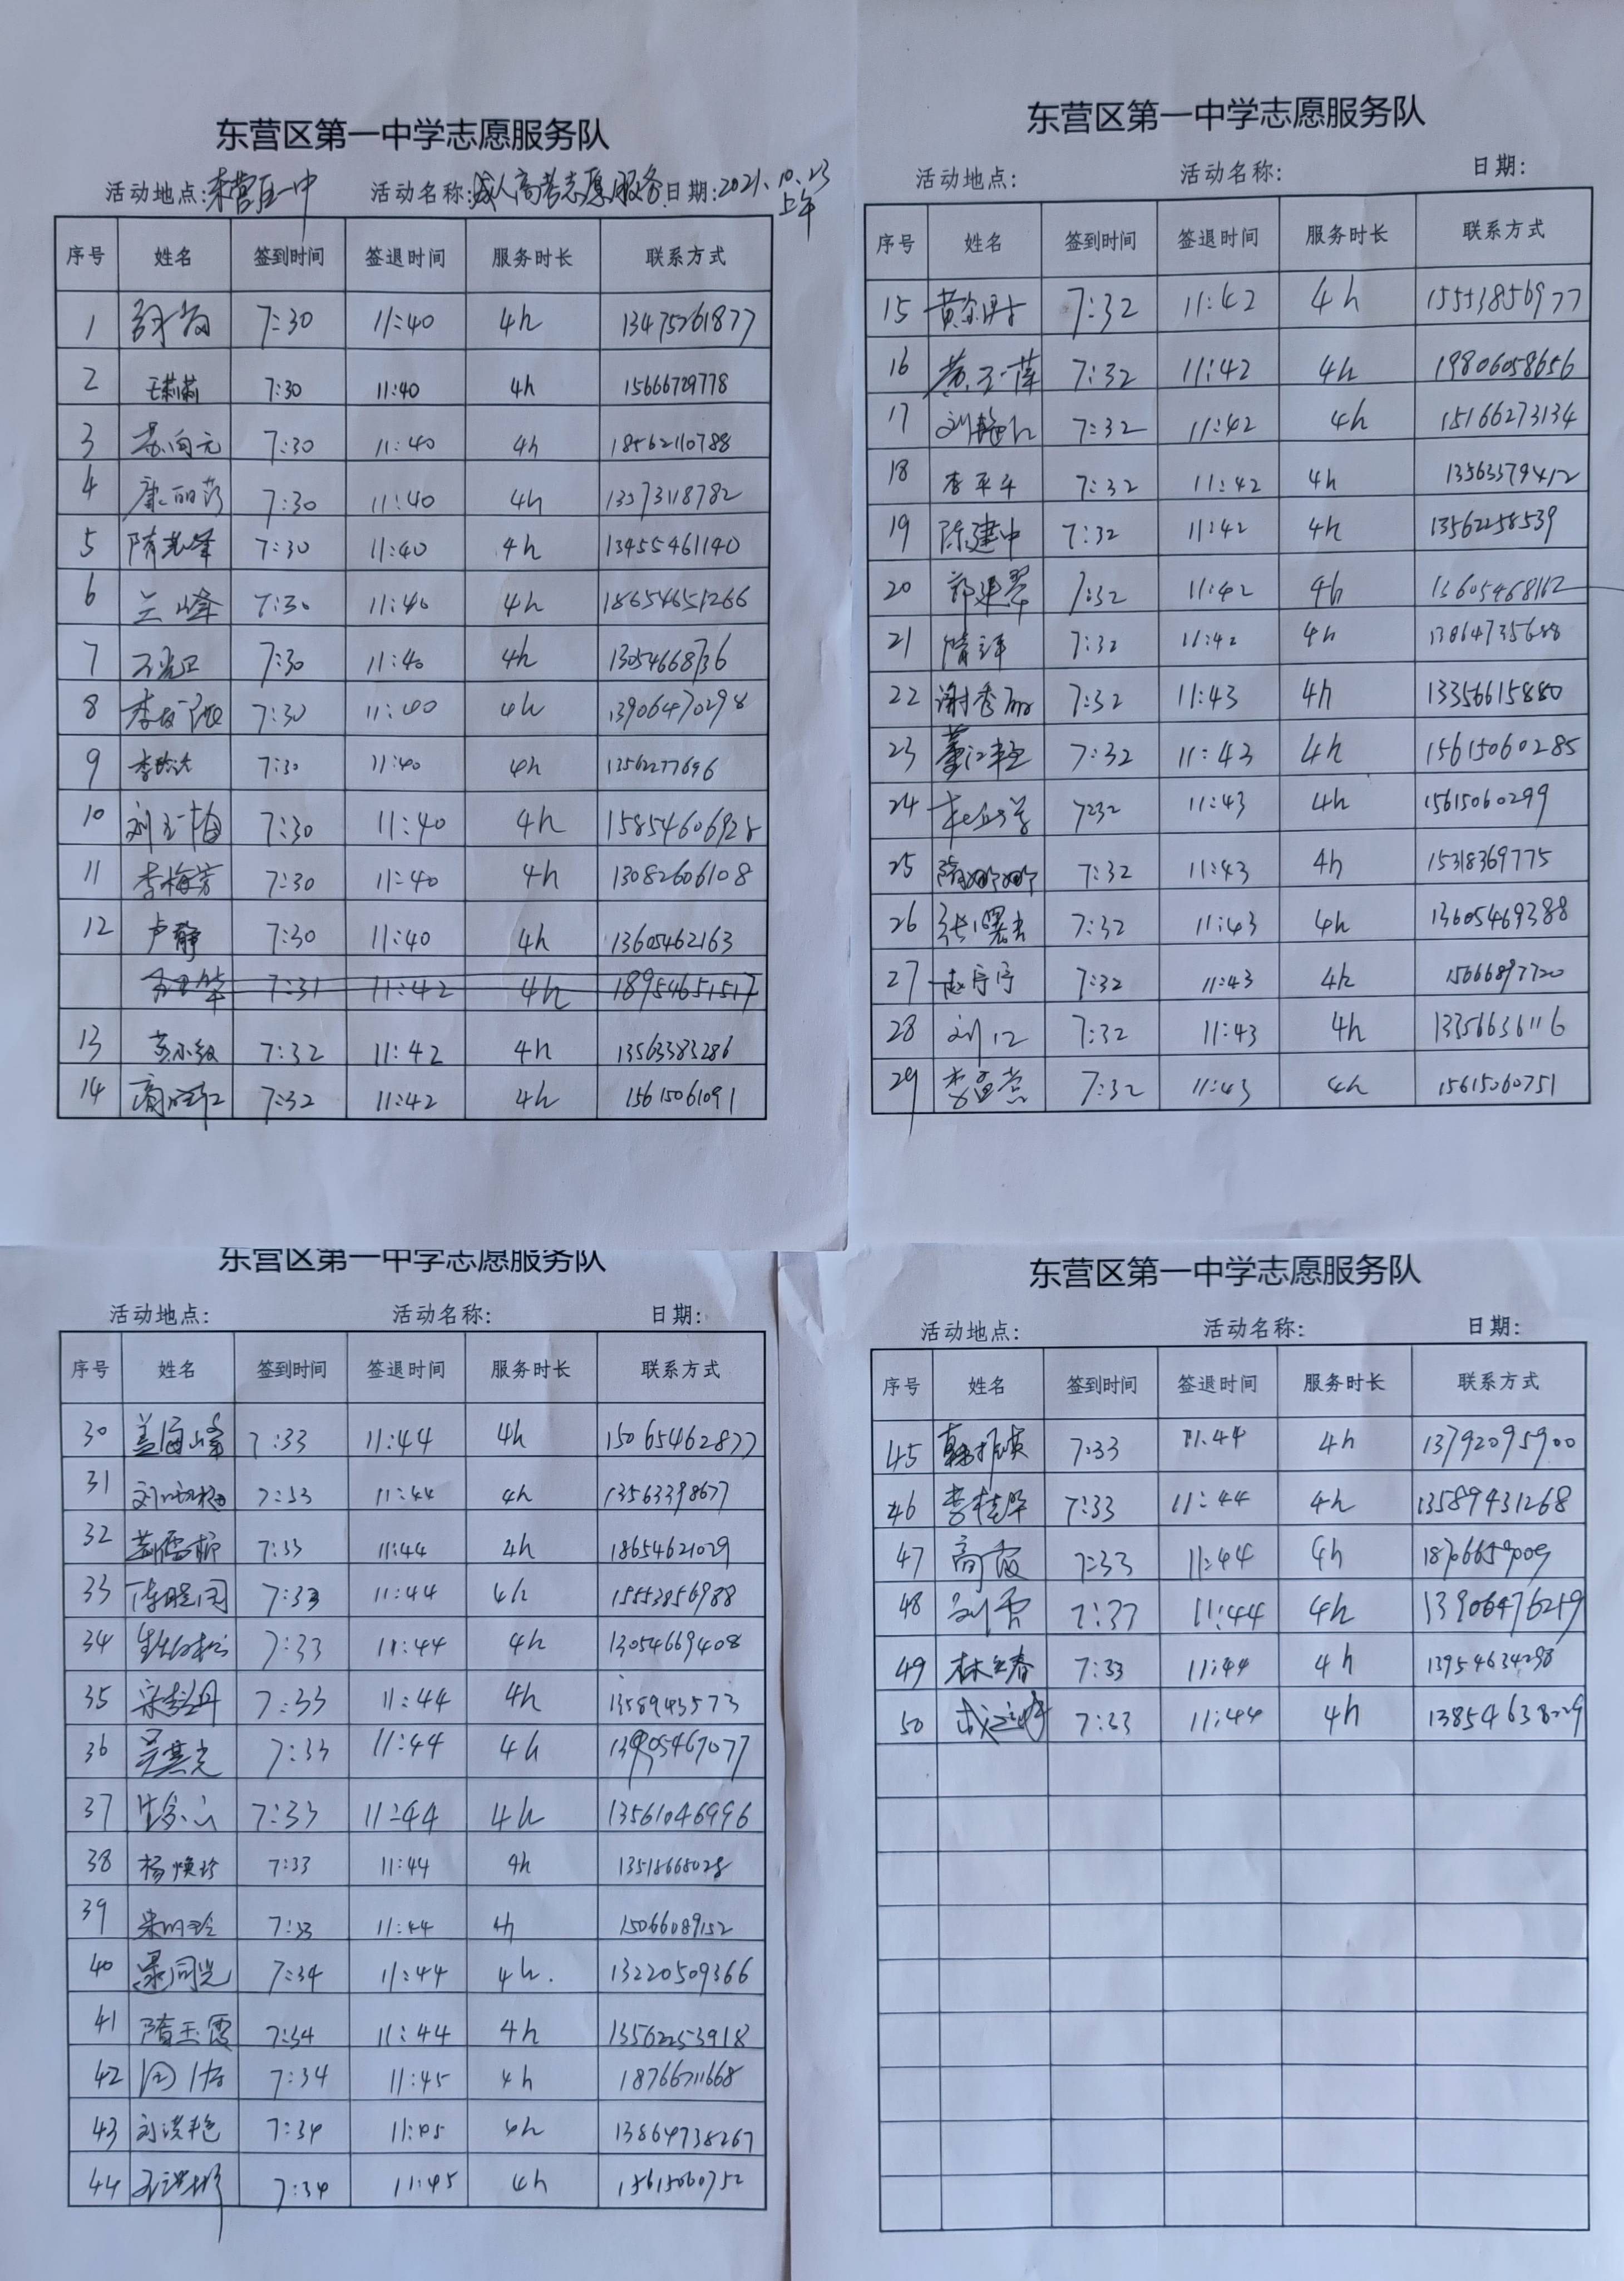 东营区第一中学志愿服务队
活动地点:东营区一中 活动名称:成人高考志愿服务 日期:2021.10.23
上午
序号 姓名 签到时间 签退时间 服务时长 联系方式
1 7:30 11:40 4h 13475261877
2 王莉莉 7:30 11:40 4h 15666729778
3 苏向元 7:30 11:40 4h 18562110788
4 康丽芳 7:30 11:40 4h 13573118782
5 隋光峰 7:30 11:40 4h 13455461140
6 兰峰 7:30 11:40 4h 18654651266
7 7:30 11:40 4h 13054668736
8 7:30 11:40 4h 13906470298
9 7:30 11:40 4h 13562277696
10 刘玉梅 7:30 11:40 4h 15854606928
11 李梅芳 7:30 11:40 4h 13082606108
12 卢静 7:30 11:40 4h 13605462163
7:31 11:42 4h 18954651517
13 7:32 11:42 4h 13563383286
14 7:32 11:42 4h 15615061091
东营区第一中学志愿服务队
活动地点: 活动名称: 日期:
序号 姓名 签到时间 签退时间 服务时长 联系方式
15 7:32 11:42 4h 15553856977
16 7:32 11:42 4h 19806058656
17 7:32 11:42 4h 15166273134
18 李平平 7:32 11:42 4h 13563379412
19 陈建中 7:32 11:42 4h 13562258539
20 郭建翠 7:32 11:42 4h 13605468162
21 7:32 11:42 4h 13864735688
22 谢秀丽 7:32 11:43 4h 13356615880
23 7:32 11:43 4h 15615060285
24 7:32 11:43 4h 15615060299
25 隋婷婷 7:32 11:43 4h 15318369775
26 张曙光 7:32 11:43 4h 13605469388
27 赵宁宁 7:32 11:43 4h 15666897720
28 刘江 7:32 11:43 4h 13356636116
29 7:32 11:43 4h 15615060751
东营区第一中学志愿服务队
活动地点: 活动名称: 日期:
序号 姓名 签到时间 签退时间 服务时长 联系方式
30 盖海峰 7:33 11:44 4h 15065462877
31 7:33 11:44 4h 13563398677
32 7:33 11:44 4h 18654621029
33 陈晓园 7:33 11:44 4h 15553856988
34 7:33 11:44 4h 13054669408
35 7:33 11:44 4h 1358943573
36 吴其光 7:33 11:44 4h 13905467077
37 7:33 11:44 4h 13561046996
38 杨焕珍 7:33 11:44 4h 13518668028
39 宋明玲 7:33 11:44 4h 15066089152
40 7:34 11:44 4h. 13220509366
41 隋玉霞 7:34 11:44 4h 13562253918
42 7:34 11:45 4h 18766711668
43 刘洪艳 7:34 11:45 4h 13864738267
44 7:34 11:45 4h 15615060752
东营区第一中学志愿服务队
活动地点: 活动名称: 日期:
序号 姓名 签到时间 签退时间 服务时长 联系方式
45 7:33 11:44 4h 13792095900
46 李桂华 7:33 11:44 4h 13589431268
47 高霞 7:33 11:44 4h 18706659009
48 刘雪 7:33 11:44 4h 13906476259
49 林立春 7:33 11:44 4h 13954634298
50 7:33 11:44 4h 13854638029